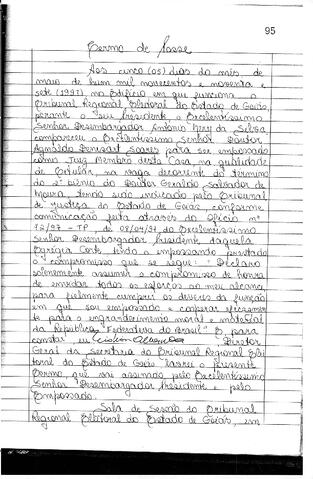 95
Termo de Posse
Aos cinco (05) dias do mês de
maio de hum mil novecentos e noventa e
sete (1997) no Edifício em que funciona o
Tribunal Regional Eleitoral do Estado de Goiás,
perante o seu Presidente o Excelentíssimo
Senhor Desembargador Antônio Nery da Silva,
compareceu o Excelentíssimo Senhor Doutor
Aginaldo Denisart Soares para ser empossado
como Juiz Membro desta Casa, na qualidade
de titular, na vaga decorrente do término
do 2º biênio do Doutor Geraldo Salvador de
Moura, tendo sido indicado pelo Tribunal
de Justiça do Estado de Goiás, conforme
comunicação feita através do Ofício nº
/97 - TP, de /97 do Excelentíssimo
Senhor Desembargador Presidente daquela
Egrégia Corte tendo o empossando prestado
o compromisso que se segue: "Declaro
solenemente assumir o compromisso de honra
de envidar todos os esforços ao meu alcance
para fielmente cumprir os deveres da função
em que sou empossado e cooperar eficazmente
te para o engrandecimento moral e material
da República Federativa do Brasil" E para
constar eu Diretor
Geral da Secretaria do Tribunal Regional Elei
toral do Estado de Goiás lavrei o presente
Termo, que vai assinado pelo Excelentíssimo
Senhor Desembargador Presidente e pelo
Empossado.
Sala de Sessão do Tribunal
Regional Eleitoral do Estado de Goiás, em